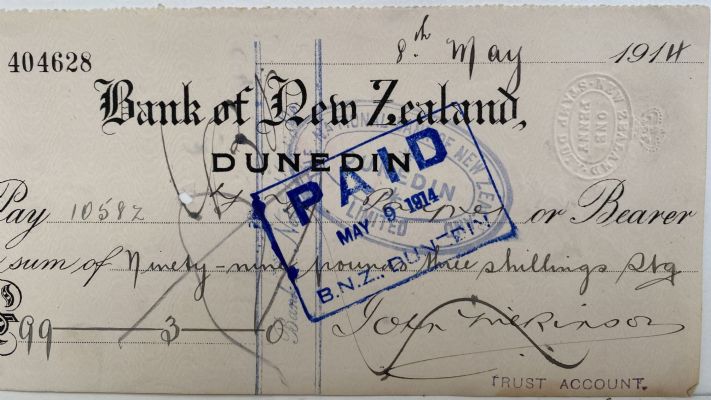 404628
8th May 1914
Bank of New Zealand,
DUNEDIN
Pay 10582 or Bearer
sum of Ninety-nine pounds three shillings Stg
£99 — 3 — 0
John Wilkinson
TRUST ACCOUNT.
PAID
MAY 9 1914
B.N.Z., DUNEDIN
NATIONAL BANK OF NEW ZEALAND
DUNEDIN
LIMITED
NEW ZEALAND
ONE
PENNY